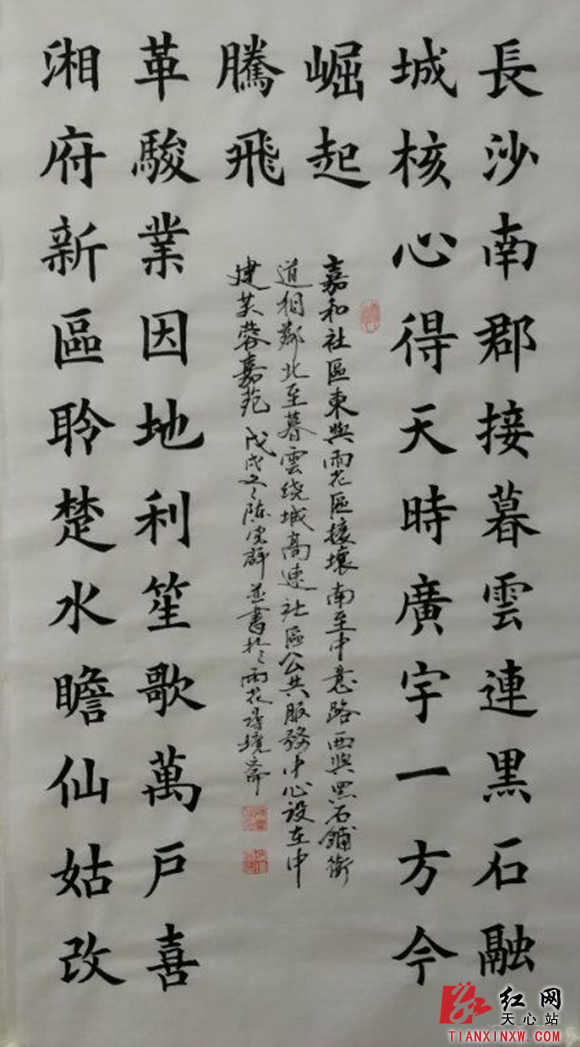 長沙南郡接暮雲連黑石融
城核心得天時廣宇一方今
崛起
湘府新區聆楚水瞻仙姑改
革駿業因地利笙歌萬戶喜
騰飛
嘉和社區東與雨花區接壤南至中意路西與黑石鋪街
道相鄰北至暮雲绕城高速社區公共服務中心設在中
建芙蓉嘉苑 戊戌冬陳群並書於雨花境齋
红网
天心站
TIANXINXW.COM